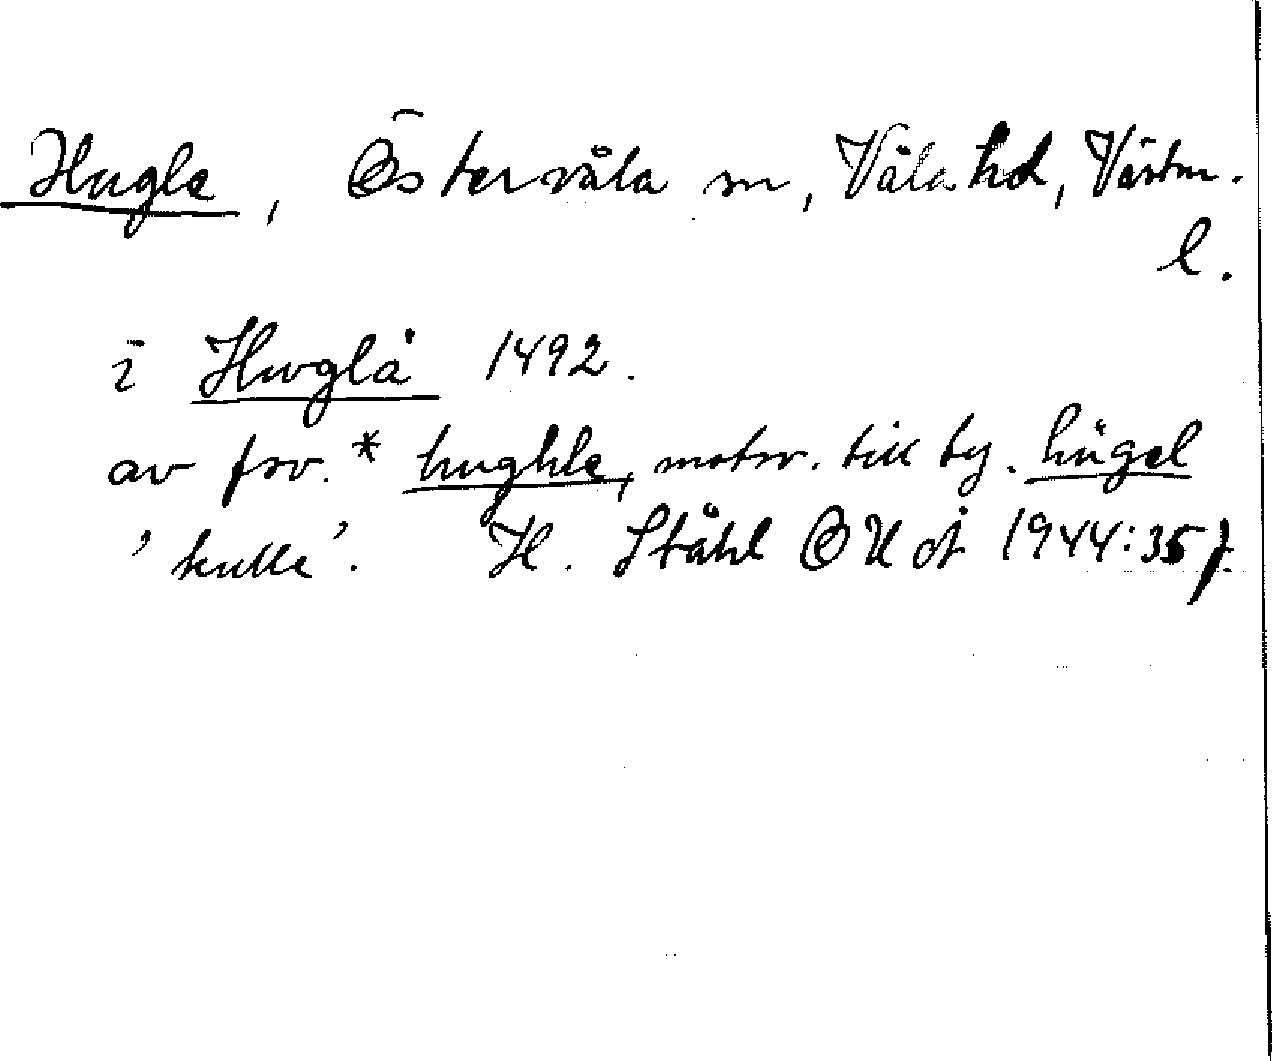 Hugle, Östervåla sn, Våla hd, Västm.
l.
i Hwglå 1492.
av fsv. * hughle, motsv. till ty. hügel
'kulle'. H. Ståhl OUÅ 1944: 35 f.